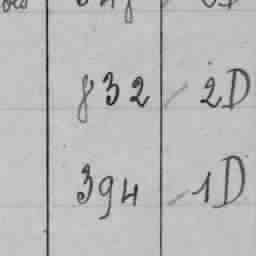 832 2D
394 1D